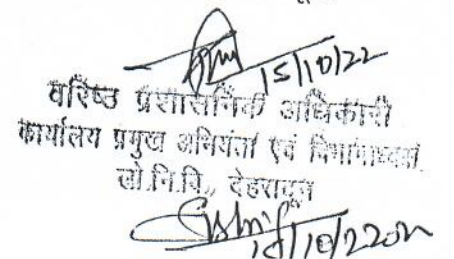 15/10/22
वरिष्ठ प्रशासनिक अधिकारी
कार्यालय प्रमुख अभियंता एवं विभागाध्यक्ष
लो.नि.वि., देहरादून